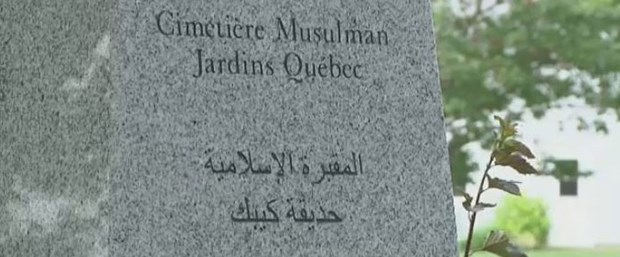 Cimetière Musulman
Jardins Québec
المقبرة الإسلامية
حديقة كيبك